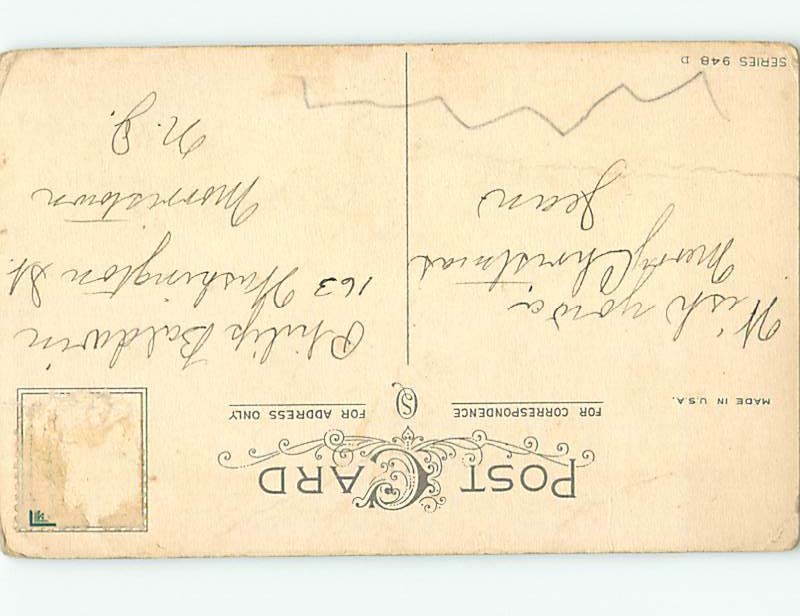 POST CARD
FOR CORRESPONDENCE
FOR ADDRESS ONLY
MADE IN U.S.A.
Wish you a
Merry Christmas
Jean
SERIES 948 D
Philip Baldwin
163 Washington St.
Morristown
N. J.